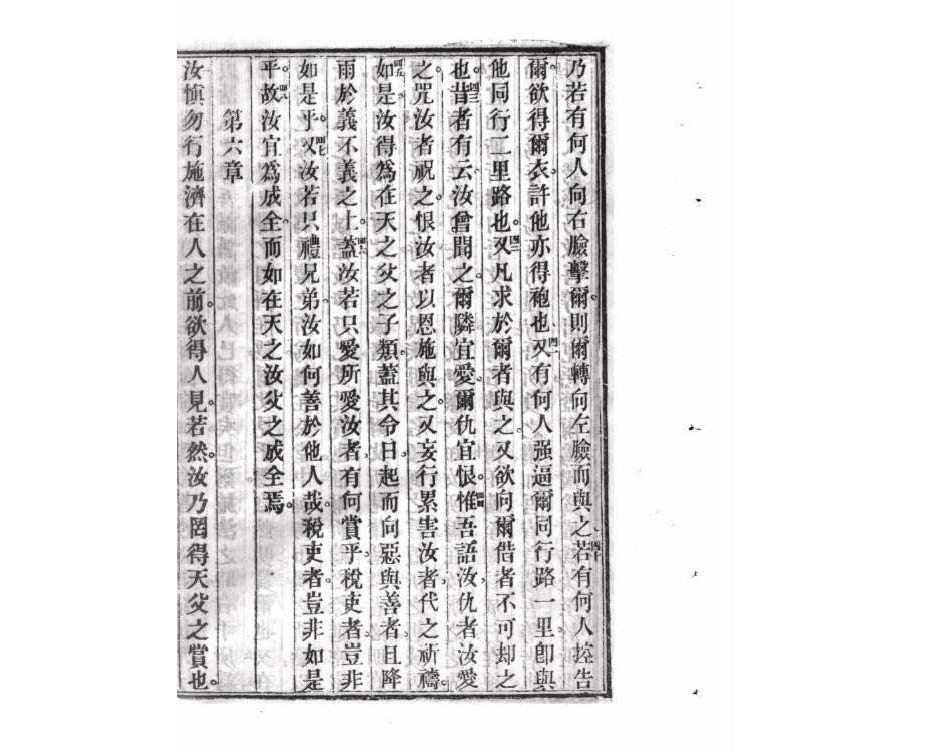 乃若有何人向右臉擊爾。則爾轉向左臉而與之。四十若有何人控告
爾。欲得爾衣。許他亦得袍也。四一又有何人强逼爾同行路一里。卽與
他同行二里路也。四二又凡求於爾者與之。又欲向爾借者不可却之
也。四三昔者有云汝曾聞之。爾隣宜愛。爾仇宜恨。四四惟吾語汝。仇者汝愛
之。咒汝者祝之。恨汝者以恩施與之。又妄行累害汝者。代之祈禱。
四五如是。汝得爲在天之父之子類。蓋其令日。起而向惡與善者。且降
雨於義不義之上。四六蓋汝若只愛所愛汝者。有何賞乎。稅吏者。豈非
如是乎。四七又汝若只禮兄弟。汝如何善於他人哉。稅吏者。豈非如是
乎。四八故汝宜爲成全。而如在天之汝父之成全焉。
第六章
汝慎勿行施濟在人之前。欲得人見。若然。汝乃罔得天父之賞也。